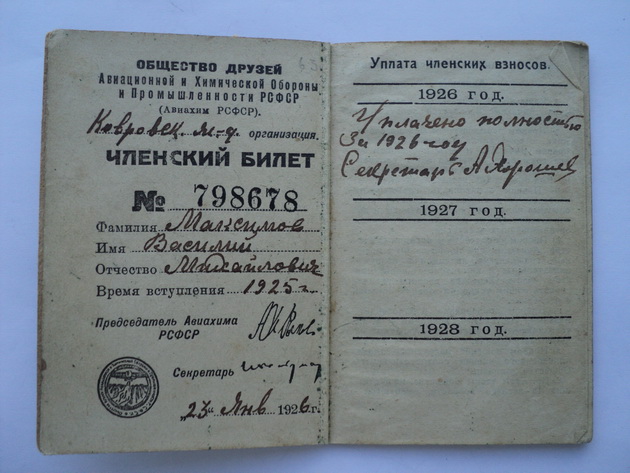 ОБЩЕСТВО ДРУЗЕЙ
Авиационной и Химической Обороны
и Промышленности РСФСР
(Авиахим РСФСР).
организация.
ЧЛЕНСКИЙ БИЛЕТ
№ 798678
Фамилия Максимов
Имя Василий
Отчество Михайлович
Время вступления 1925 г.
Председатель Авиахима
РСФСР
Секретарь
"23" Янв 1926 г.
Уплата членских взносов.
1926 год.
Уплачено полностью
за 1926 году
Секретарь А
1927 год.
1928 год.